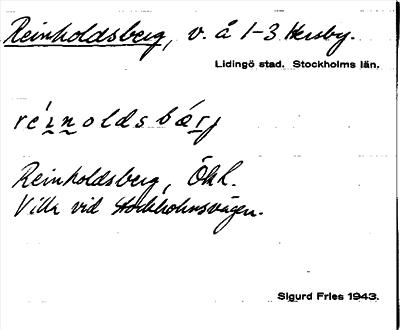 Reinholdsberg, v. å 1-3 Hersby.
Lidingö stad. Stockholms län.
réi̱ṉoldsbærj
Reinholdsberg, Ökl.
Villa vid Stockholmsvägen.
Sigurd Fries 1943.